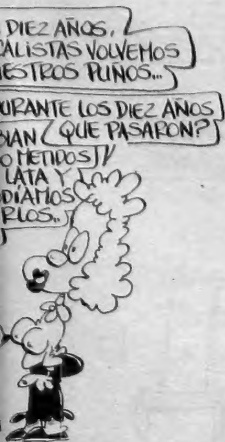 DIEZ AÑOS,
CALISTAS VOLVEMOS
ESTROS PUÑOS...
URANTE LOS DIEZ AÑOS
BIAN ¿QUE PASARON?
O METIDOS
LATA Y
DÍAMOS
RLOS..